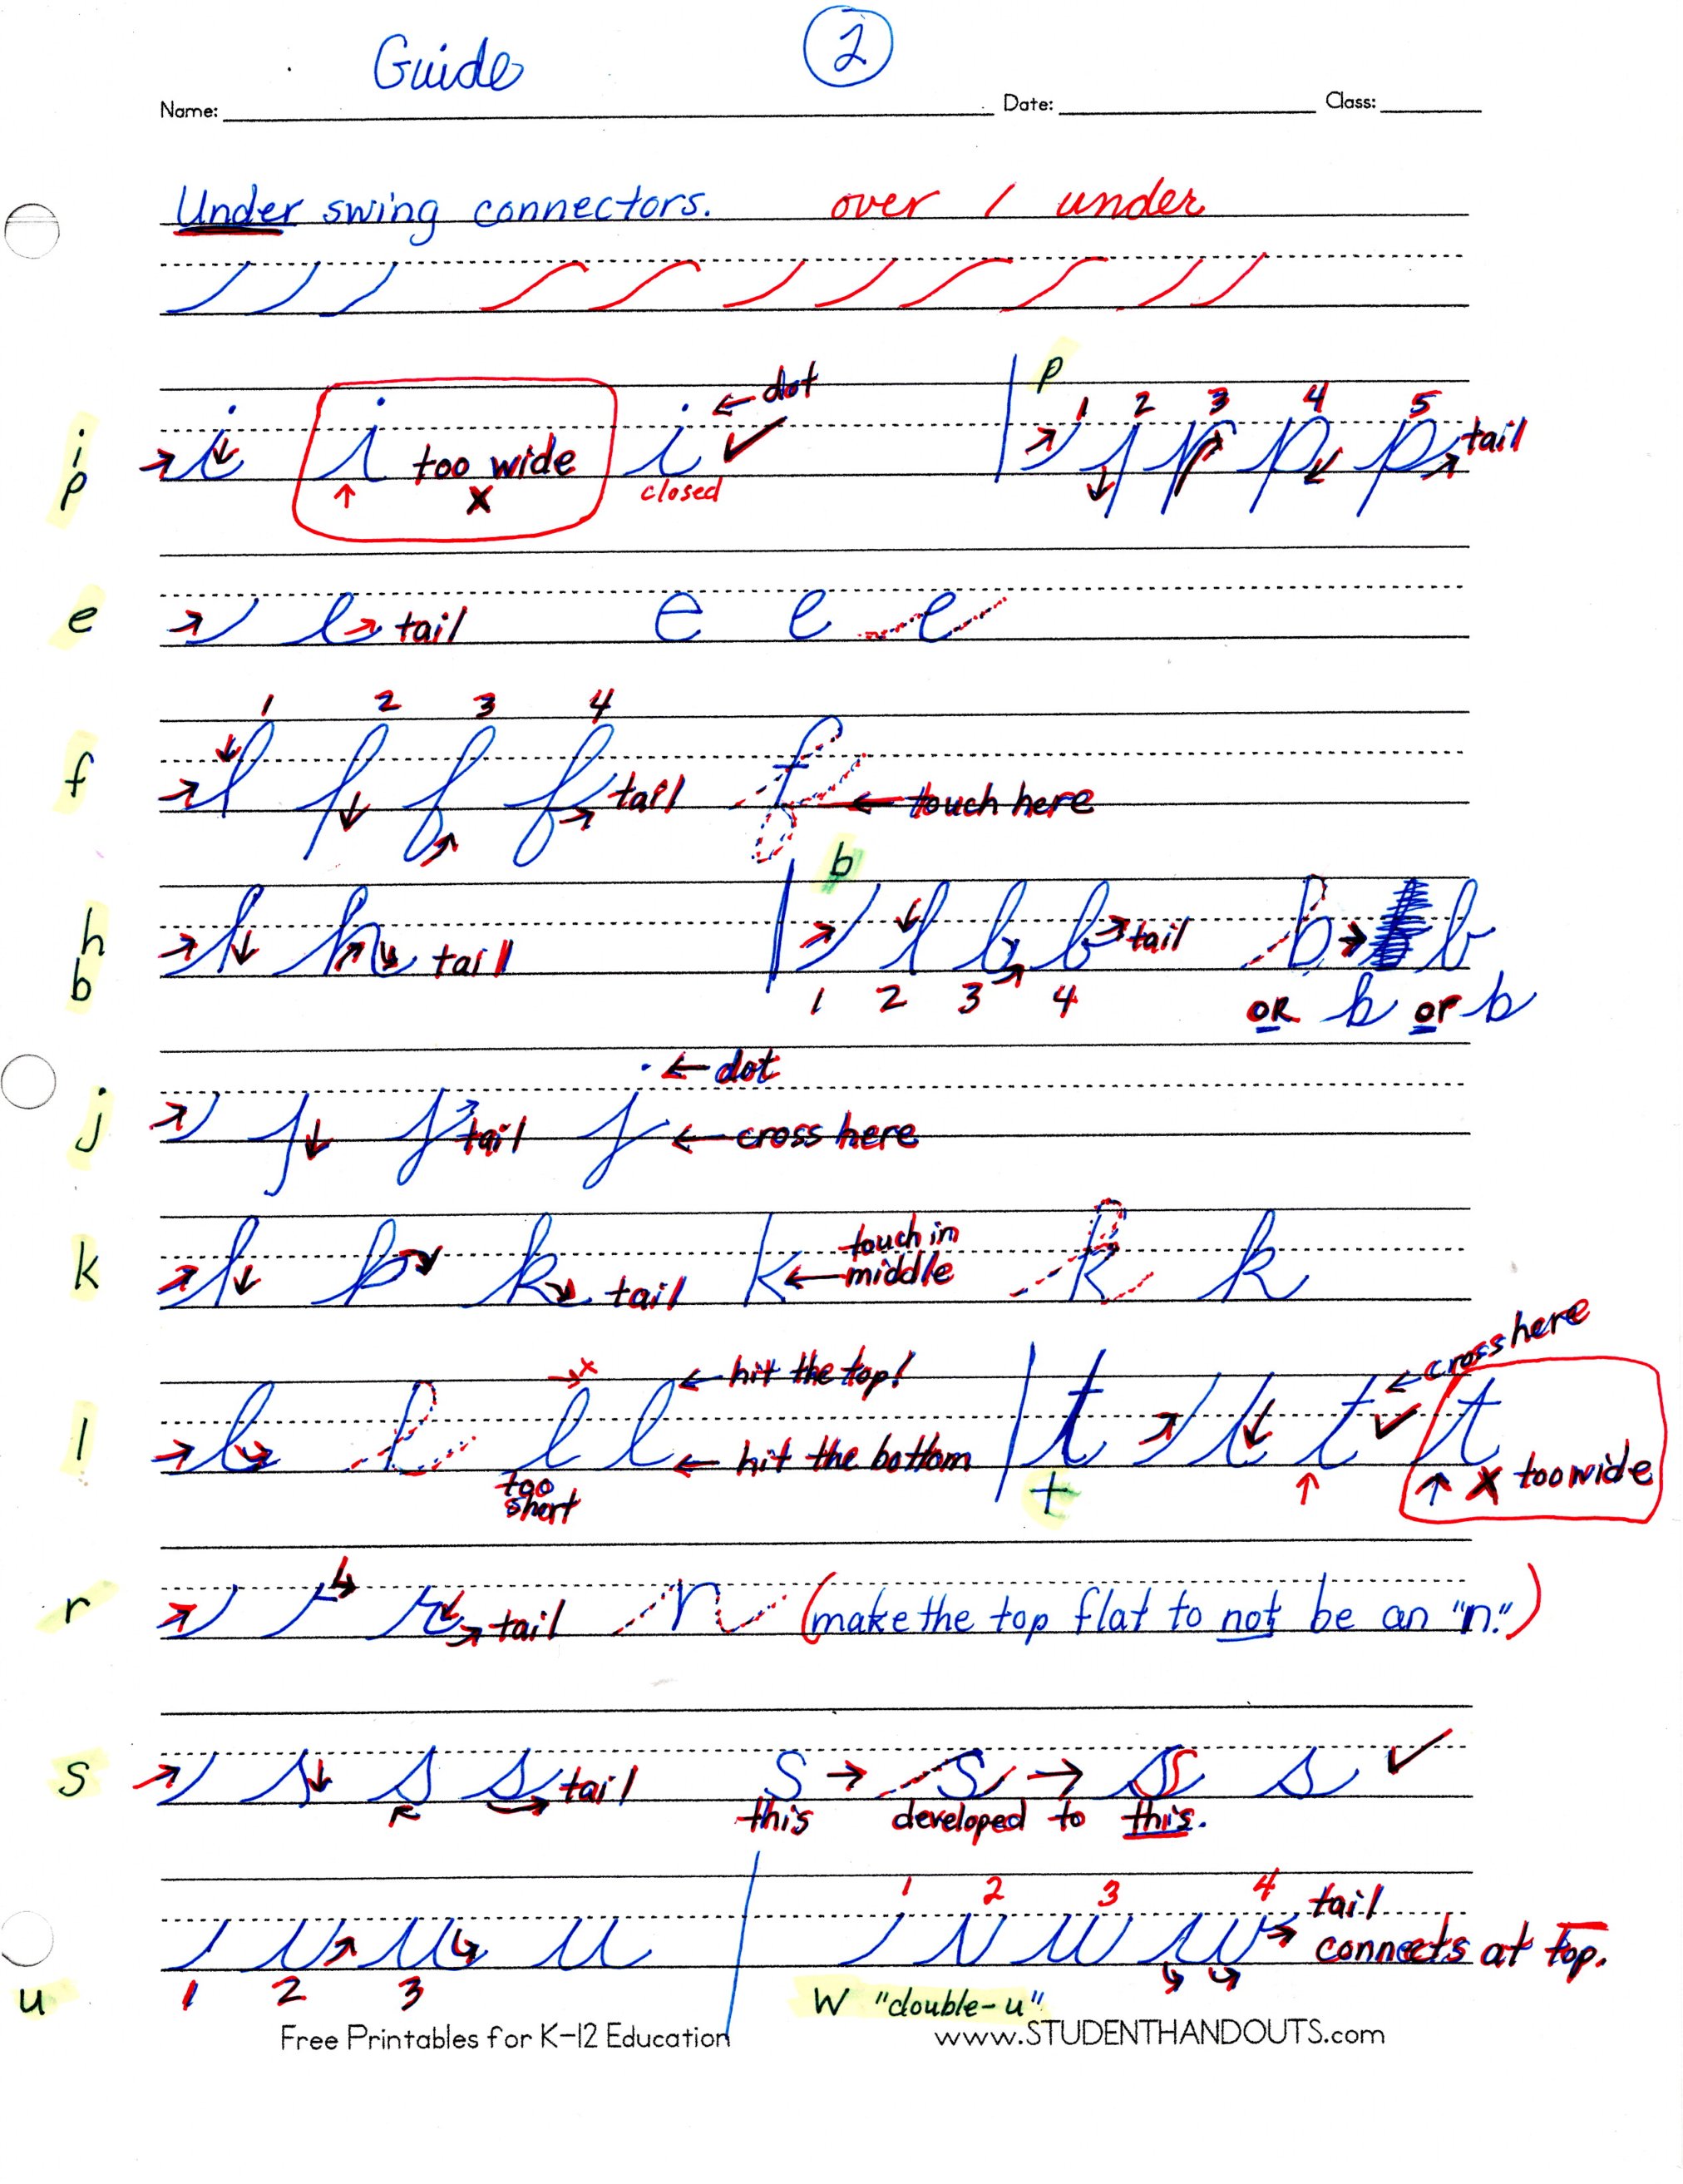 Guide 2
Name: Date: Class:
Under swing connectors. over / under
i p i i too wide X i closed ← dot ✓ p 1 2 3 4 5 p p p tail
e e tail e e e
f 1 2 3 4 f f f f tail f ← touch here
h b h h tail b 1 2 3 4 l b b tail b → b OR b or b
j j j tail j ← dot ← cross here
k h k k tail k ← touch in middle k k
l l l l too short l ← hit the top! ← hit the bottom t t t t ✓ ← cross here t X too wide
r r r tail r (make the top flat to not be an "n.")
s s s s tail s → s → s s ✓
this developed to this.
u 1 2 3 u u u 1 2 3 4 w w tail connects at top.
w "double-u"
Free Printables for K-12 Education www.STUDENTHANDOUTS.com